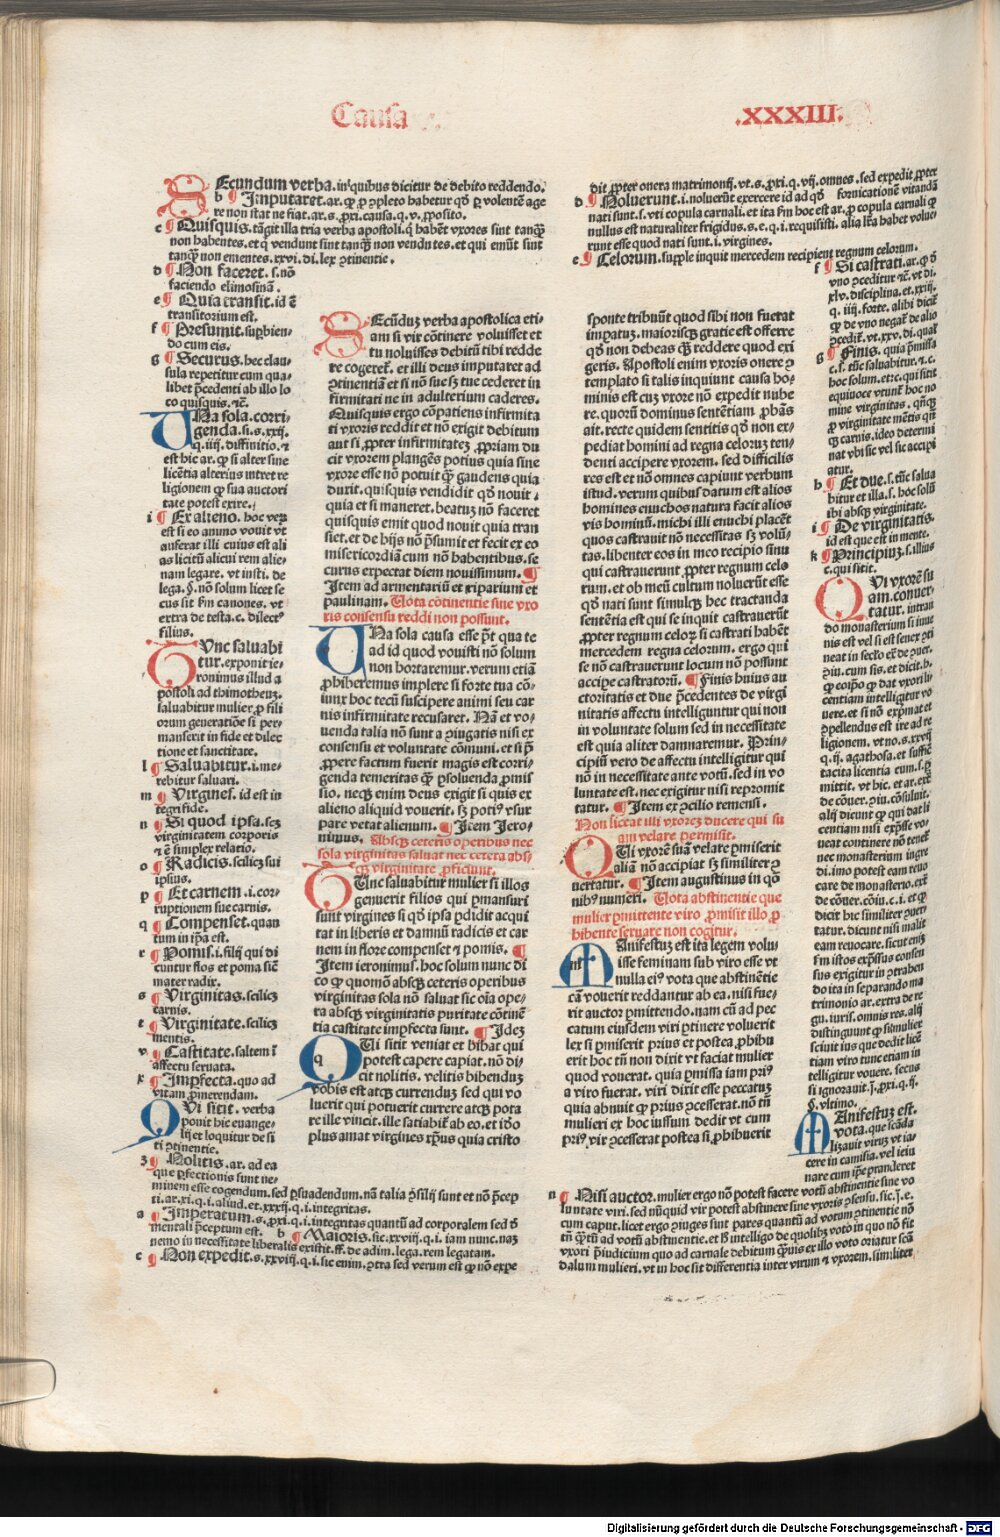 Causa
.XXXIII.
SEcundum verba. in quibus dicitur de debito reddendo.
b ¶ Imputaret. ar. ꝙ ꝓ ꝯpleto habetur qđ ꝑ volentē age
re non stat ne fiat. ar. s. ꝓxi. causa. q. v. ꝓposito.
c ¶ Quisquis. tāgit illa tria verba apostoli. q̇ habēt vxores sint tanqȝ
non habentes. et q̇ vendunt sint tanqȝ non vendūtes. et qui emūt sint
tanqȝ non ementes. xxvi. di. lex ꝯtinentie.
d ¶ Non faceret. s. nō
faciendo elimosinā.
e ¶ Quia transit. id ē
transitorium est.
f ¶ Presumit. suꝑbien⸗
do cum eis.
g ¶ Securus. hec clau⸗
sula repetitur cum qua⸗
libet p̄cedenti ab illo lo
co quisquis. ⁊c.
UNa sola. corri⸗
genda. si. s. xxij.
q. iiij. diffinitio. ⁊
est hic ar. ꝙ si alter sine
licētia alterius intret re
ligionem ꝙ sua auctori
tate potest exire.
i ¶ Ex alieno. hoc veꝝ
est si eo animo vouit vt
auferat illi cuius est ali
as licitū alicui rem alie⸗
nam legare. vt insti. de
lega. §. nō solum licet se
cus sit ẜm canones. vt
extra de testa. c. dilectꝰ
filius.
TUnc saluabi
tur. exponit ie⸗
ronimus illud a
postoli ad thimotheuȝ.
saluabitur mulier ꝑ fili
orum generatiōe si per⸗
manserit in fide et dilec
tione et sanctitate.
l ¶ Saluabitur. i. me⸗
rebitur saluari.
m ¶ Virgines. id est in
tegri fide.
n ¶ Si quod ipsa. scȝ
virginitatem corporis
⁊ ē simplex relatio.
o ¶ Radicis. scilicȝ sui
ipsius.
p ¶ Et carnem. i. cor⸗
ruptionem sue carnis.
q ¶ Compenset. quan
tum in ip̄a est.
r ¶ Pomis. i. filij qui di
cuntur flos et poma sicȝ
mater radix.
s ¶ Virginitas. scilicȝ
carnis.
t ¶ Virginitate. scilicȝ
mentis.
v ¶ Castitate. saltem i
affectu seruata.
x ¶ Imꝑfecta. quo ad
vitam ꝓmerendam.
QUi sitit. verba
ponit hic euange⸗
lij et loquitur de si
ti ꝯtinentie.
z ¶ Nolitis. ar. ad ea
que ꝑfectionis sunt ne⸗
minem esse cogendum. sed ꝑsuadendum. nā talia ꝯsilij sunt et nō p̄cep
ti. ar. xi. q. i. aliud. et. xxxij. q. i. integritas.
a ¶ Imperatum. s. ꝓxi. q. i. integritas quantū ad corporalem sed ꝯ̇
mentali p̄ceptum est. b ¶ Maioris. sic. xxviij. q. i. iam nunc. naȝ
nemo in necessitate liberalis existit. ff. de adim. lega. rem legatam.
c ¶ Non expedit. s. xxviij. q. i. sic enim. ꝯtra sed verum est ꝙ nō expe
SEcūduȝ verba apostolica eti⸗
am si vir cōtinere voluisset et
tu noluisses debitū tibi redde
re cogeret̄. et illi deus imputaret ad
ꝯtinentiā et si nō sue sȝ tue cederet in
firmitati ne in adulterium caderes.
Quisquis ergo cōpatiens infirmita
ti vxoris reddit et nō exigit debitum
aut si ꝓpter infirmitatēȝ ꝓpriam du
cit vxorem plangēs potius quia sine
vxore esse nō potuit qȝ gaudens quia
duxit. quisquis vendidit qđ nouit
quia et si maneret. beatuȝ nō faceret
quisquis emit quod nouit quia tran
siet. et de hijs nō p̄sumit et fecit ex eo
misericordiā cum nō habentibus. se
curus expectat diem nouissimum. ¶
Item ad armentariū et ꝓparium et
paulinam. Uota cōtinentie sine vxo
ris consensu reddi non possunt.
UNa sola causa esse p̄t qua te
ad id quod vouisti nō solum
non hortaremur. verum etiā
ꝓhiberemus implere si forte tua cō⸗
iunx hoc tecū suscipere animi seu car
nis infirmitate recusaret. Nā et vo⸗
uenda talia nō sunt a ꝯiugatis nisi ex
consensu et voluntate cōmuni. et si p̄
ꝓpere factum fuerit magis est corri⸗
genda temeritas qȝ ꝑsoluenda ꝓmis
sio. necȝ enim deus exigit si quis ex
alieno aliquid vouerit. sȝ potiꝰ vsur
pare vetat alienum. ¶ Item Jero⸗
nimus. Absqȝ ceteris operibus nec
sola virginitas saluat nec cetera abs⸗
qȝ virginitate ꝓficiunt.
TUnc saluabitur mulier si illos
genuerit filios qui ꝑmansuri
sunt virgines si qđ ipsa ꝑdidit acqui
tat in liberis et damnū radicis et car
nem in flore compenset ⁊ pomis. ¶
Item ieronimus. hoc solum nunc di
co ꝙ quomō absqȝ ceteris operibus
virginitas sola nō saluat sic oīa ope⸗
ra absqȝ virginitatis puritate cōtinē
tia castitate imꝑfecta sunt. ¶ Ideȝ
QUi sitit veniat et bibat qui
potest capere capiat. nō di⸗
cit nolitis. velitis bibenduȝ
vobis est atqȝ currenduȝ sed qui vo
luerit qui potuerit currere atqȝ pota
re ille vincit. ille satiabit̄ ab eo. et idō
plus amat virgines xp̄us quia cristo
dit ꝓpter onera matrimonij. vt. s. ꝓxi. q. vij. omnes. sed expedit ꝓpter
d ¶ Noluerunt. i. noluerūt exercere id ad qđ fornicationē vitandā
nati sunt. s. vti copula carnali. et ita ẜm hoc est ar. ꝙ copula carnali ꝙ
nullus est naturaliter frigidus. s. e. q. i. requisisti. alia lr̄a habet volue
runt esse quod nati sunt. i. virgines.
e ¶ Celorum. supple inquit mercedem recipient regnum celorum.
sponte tribuūt quod sibi non fuerat
imꝑatuȝ. maiorisqȝ gratie est offerre
qđ non debeas qȝ reddere quod exi
geris. Apostoli enim vxoris onere ꝯ
templato si talis inquiunt causa ho⸗
minis est cuȝ vxore nō expedit nube
re. quorū dominus sentētiam ꝓbās
ait. recte quidem sentitis qđ non ex⸗
pediat homini ad regna celoruȝ ten⸗
denti accipere vxorem. sed difficilis
res est et nō omnes capiunt verbum
istud. verum quibus datum est alios
homines enuchos natura facit alios
vis hominū. michi illi enuchi placēt
quos castrauit nō necessitas sȝ volū⸗
tas. libenter eos in meo recipio sinu
qui castrauerunt ꝓpter regnum celo
rum. et ob meū cultum noluerūt esse
qđ nati sunt simulqȝ hec tractanda
sentētia est qui se inquit castrauerūt
ꝓpter regnum celoꝝ si castrati habēt
mercedem regna celorum. ergo qui
se nō castrauerunt locum nō possunt
accipe castratorū. ¶ Finis huius au
ctoritatis et due p̄cedentes de virgi
nitatis affectu intelliguntur qui non
in voluntate solum sed in necessitate
est quia aliter damnaremur. Prin⸗
cipiū vero de affectu intelligitur qui
nō in necessitate ante votū. sed in vo
luntate est. nec exigitur nisi repromit
tatur. ¶ Item ex ꝯcilio remensi.
Non liceat illi vxoreȝ ducere qui su
am velare ꝑmisit.
QUi vxorē suā velare ꝑmiserit
aliā nō accipiat sȝ similiter ꝯ
uertatur. ¶ Item augustinus in qō
nibꝰ numeri. Uota abstinentie que
mulier ꝑmittente viro ꝓmisit illo ꝓ
hibente seruare non cogitur.
MAnifestuȝ est ita legem volu
isse feminam sub viro esse vt
nulla eiꝰ vota que abstinētie
cā vouerit reddantur ab ea. nisi fue⸗
rit auctor ꝑmittendo. nam cū ad pec
catum eiusdem viri ꝑtinere voluerit
lex si ꝑmiserit prius et postea ꝓhibu
erit hoc tn̄ non dixit vt faciat mulier
quod vouerat. quia ꝑmissa iam priꝰ
a viro fuerat. viri dixit esse peccatuȝ
quia abnuit ꝙ prius ꝯcesserat. nō tn̄
mulieri ex hoc iussum dedit vt cum
priꝰ vir ꝯcesserat postea si ꝓhibuerit
f ¶ Si castrati. ar. ꝙ ꝯ̇
vno ꝯceditur ⁊c. vt di.
xlv. disciplina. et. xxiij.
q. iiij. forte. alibi dicit̄
ꝙ de vno negat̄ de alio
ꝯcedit̄. vt. xxv. di. qualis
g ¶ Finis. quia p̄missa
c. s. tūc saluabitur. ⁊ c.
hoc solum. et. c. qui sitit
equiuoce vtunt̄ hoc no
mine virginitas. qn̄qȝ
ꝓ virginitate mētis qn̄
qȝ carnis. ideo determi
nat vbi sic vel sic accipi
atur.
h ¶ Et due. s. tūc salua
bitur et illa. s. hoc solū
ibi absqȝ virginitate.
i ¶ De virginitatis.
id est que est in mente.
k ¶ Principiuȝ. s. illius
c. qui sitit.
QUi vxorē su
am. conuer⸗
tatur. intran
do monasterium si iuue
nis est vel si est senex ꝯti
neat in seclo ex̄ de ꝯuer.
ꝯiu. cum sis. et dicit. h.
ꝙ eoip̄o ꝙ dat vxori li⸗
centiam intelligitur vo
uere. et si nō exp̄mat et
ꝯpellendus est ire ad re
ligionem. vt no. s. xxvij
q. ij. agathosa. et suffic̄
tacita licentia cum. s. ꝑ
mittit. vt hic. et ar. ex̄
de cōuer. ꝯiu. cōsuluit.
alij dicunt ꝙ qui dat li
centiam nisi exp̄sse vo⸗
ueat continere nō tenet̄
nec monasterium ingre
di. imo potest eam reuo
care de monasterio. ex̄
de cōuer. cōiu. c. i. et ꝙ
dicit hic similiter ꝯuer⸗
tatur. dicunt nisi malit
eam reuocare. sicut eniȝ
ẜm istos exp̄ssus consen
sus exigitur in ꝯtrahen
do ita in separando ma
trimonio ar. extra de re
gu. iuris. omnis res. alij
distinguunt ꝙ si mulier
sciuit ius que dedit licē
tiam viro tunc etiam in
telligitur vouere. secus
si ignorauit. j. ꝓxi. q. ij.
§. vltimo.
MAnifestuȝ est.
vota. que scāda
lizauit viruȝ vt ia⸗
cere in camisia. vel ieiu
nare cum ip̄e pranderet
n ¶ Nisi auctor. mulier ergo nō potest facere votū abstinentie sine vo
luntate viri. sed nūquid vir potest abstinere sine vxoris ꝯsensu. sic. j. e.
cum caput. licet ergo ꝯiuges sint pares quantū ad votum ꝯtinentie nō
tn̄ qȝtū ad votū abstinentie. et ꝧ intelligo de quolibȝ voto in quo nō fit
vxori p̄iudicium quo ad carnale debitum qȝuis ex illo voto oriatur scā
dalum mulieri. vt in hoc sit differentia inter virum ⁊ vxorem. similiter
Digitalisierung gefördert durch die Deutsche Forschungsgemeinschaft - DFG